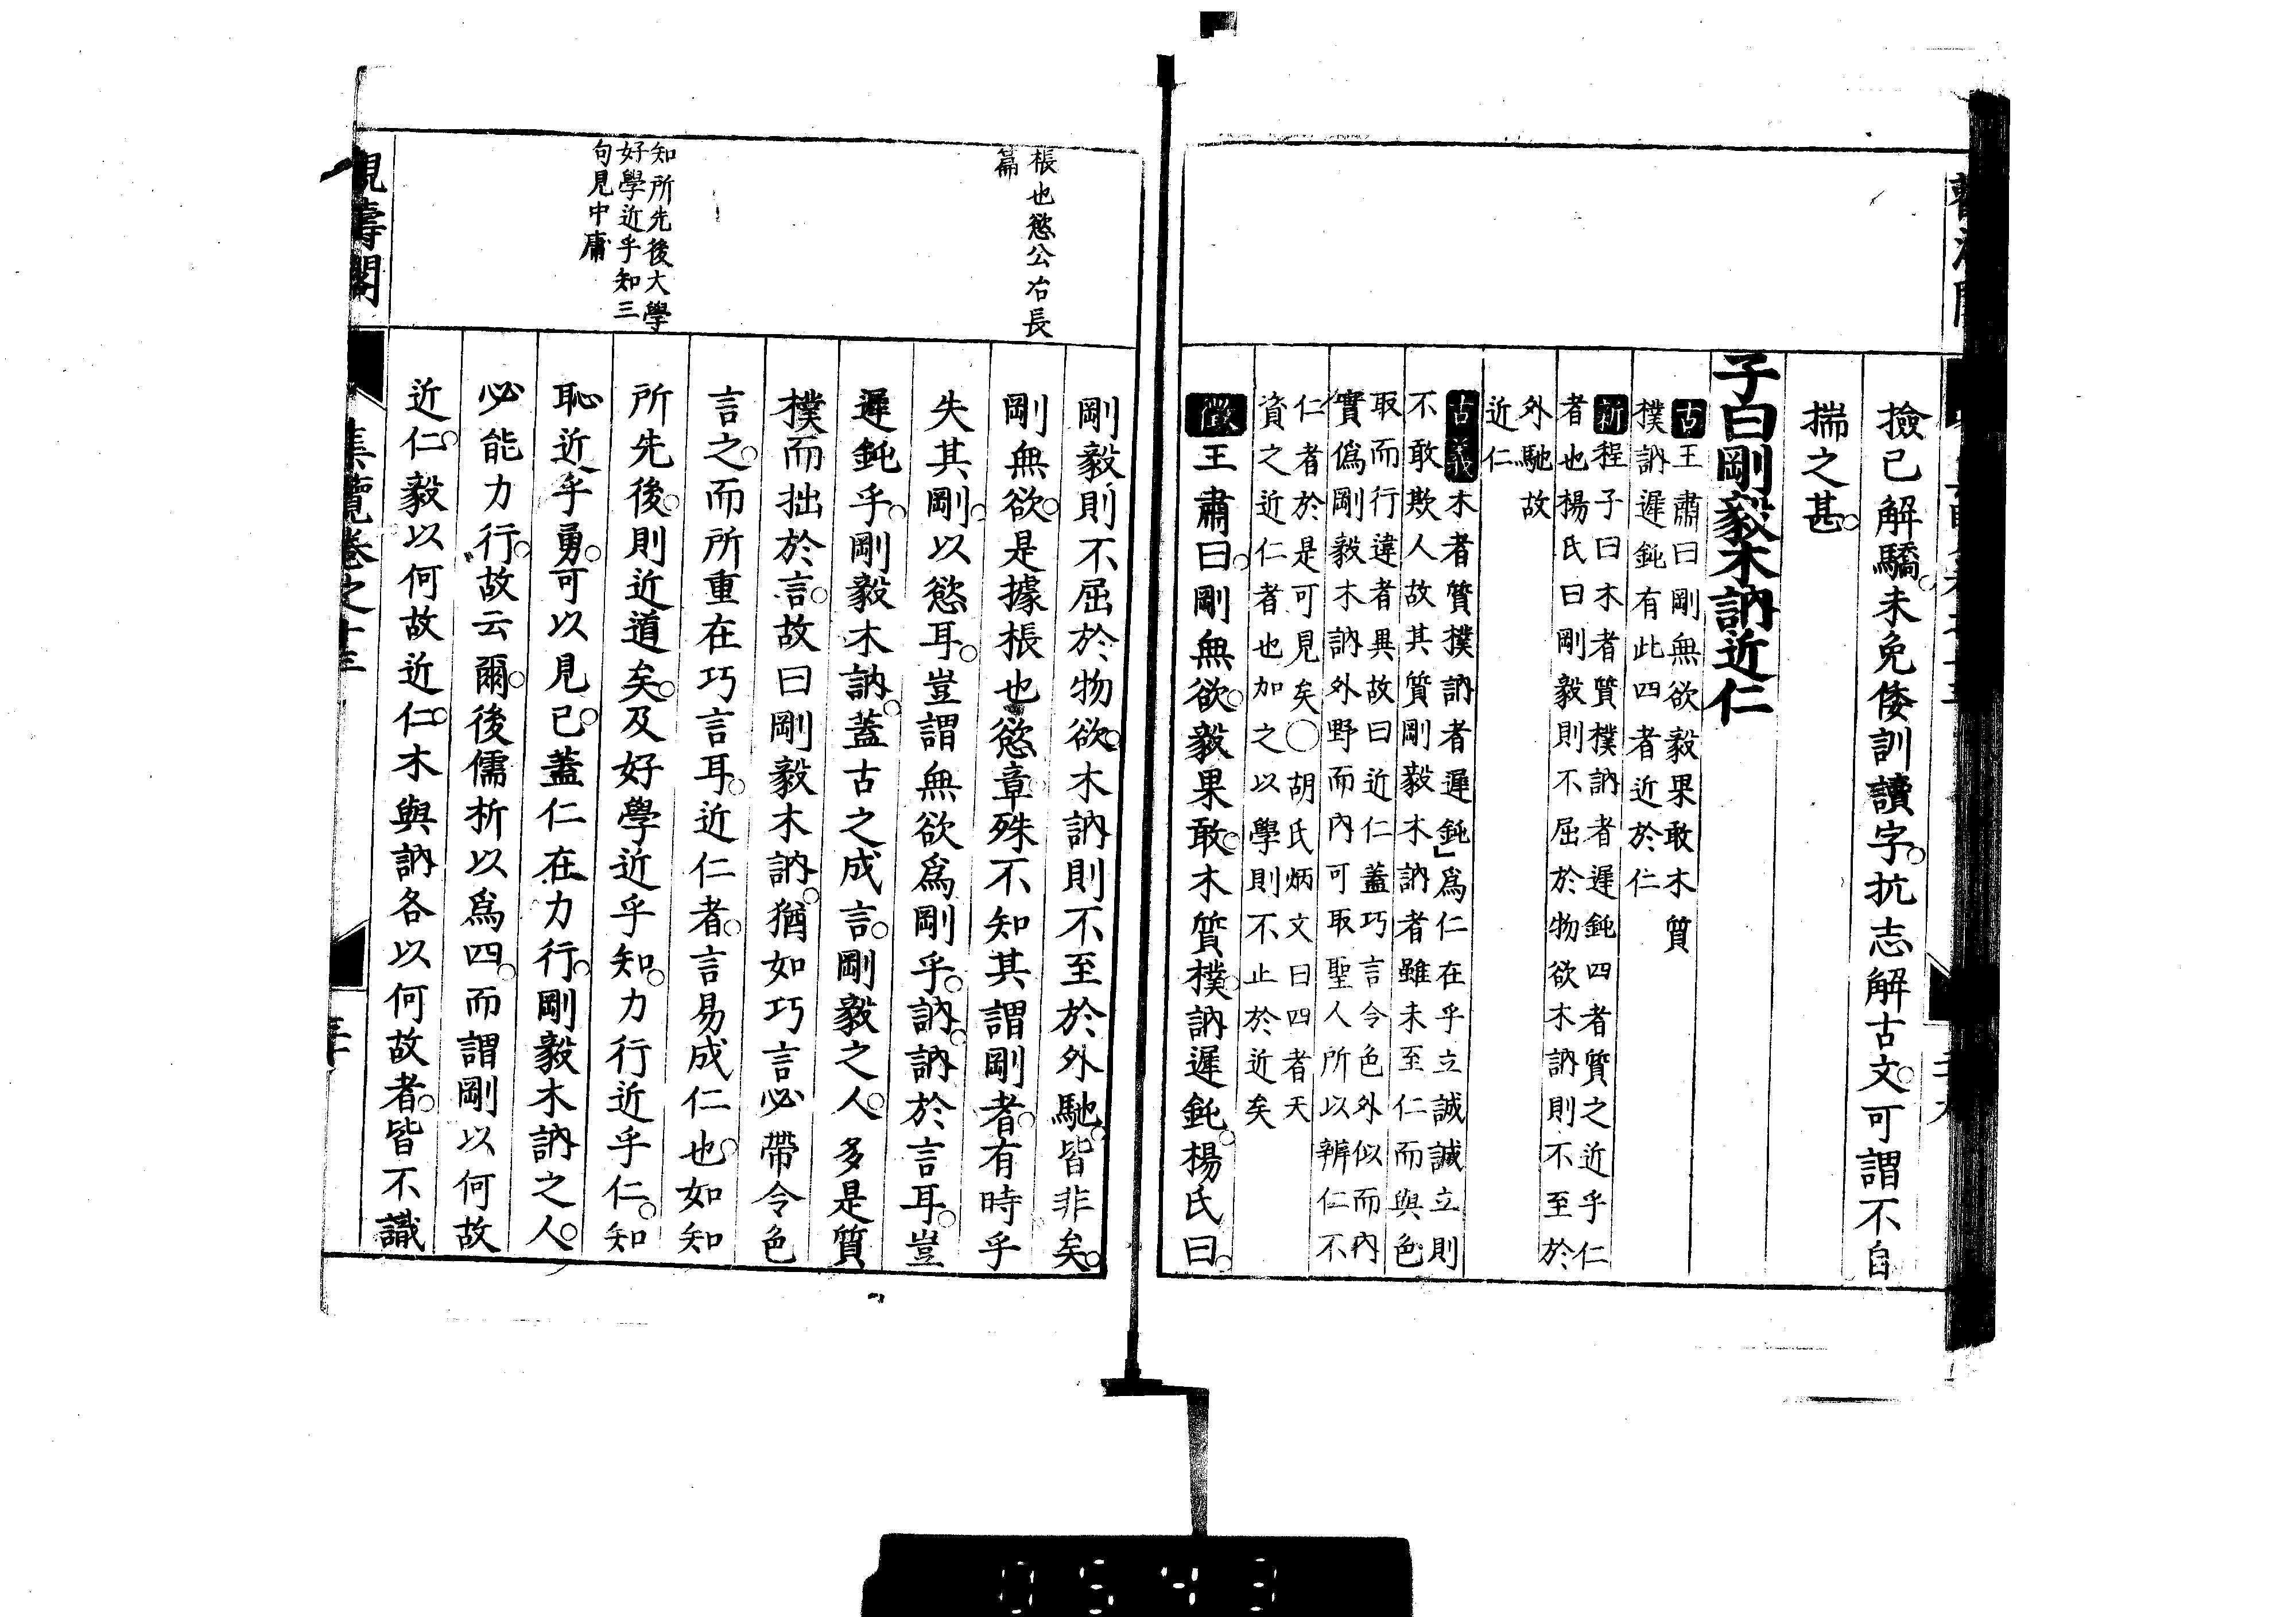 撿已解驕未免倭訓讀字抗志解古文可謂不自
揣之甚
子曰剛毅木訥近仁
古王肅曰剛無欲毅果敢木質
樸訥遲鈍有此四者近於仁
新程子曰木者質樸訥者遲鈍四者質之近乎仁
者也楊氏曰剛毅則不屈於物欲木訥則不至於
外馳故
近仁
古義木者質樸訥者遲鈍」為仁在乎立誠誠立則
不敢欺人故其質剛毅木訥者雖未至仁而與色
取而行違者異故曰近仁蓋巧言令色外似而內
實偽剛毅木訥外野而內可取聖人所以辨仁不
仁者於是可見矣○胡氏炳文曰四者天
資之近仁者也加之以學則不止於近矣
徵王肅曰剛無欲毅果敢木質樸訥遲鈍楊氏曰
棖也慾公冶長
篇
剛毅則不屈於物欲木訥則不至於外馳皆非矣
剛無欲是據棖也慾章殊不知其謂剛者有時乎
失其剛以慾耳豈謂無欲爲剛乎訥訥於言耳豈
遲鈍乎剛毅木訥蓋古之成言剛毅之人多是質
樸而拙於言故曰剛毅木訥猶如巧言必帶令色
言之而所重在巧言耳近仁者言易成仁也如知
知所先後大學
好學近乎知三
句見中庸
所先後則近道矣及好學近乎知力行近乎仁知
恥近乎勇可以見已蓋仁在力行剛毅木訥之人
必能力行故云爾後儒析以爲四而謂剛以何故
近仁毅以何故近仁木與訥各以何故者皆不識
觀濤閣
集覽卷之十三
三十
0543